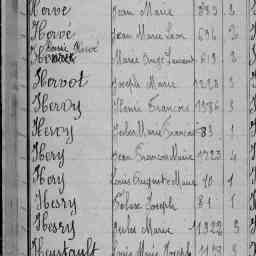 Herve Jean Marie 883 2
Herve Jean Marie Léon 636 2
Louis Hervé
Marie Ange Laurent 613 2
Hervot Joseph Marie 1228 3
Hervy Pierre François 1386 3
Hervy Jules Marie François 83 1
Hery Jean François Marie 1723 4
Hery Louis Auguste Marie 10 1
Hesry Joseph 81 1
Hesry Jules Marie 11322 3
Heurtault Louis Marie Joseph